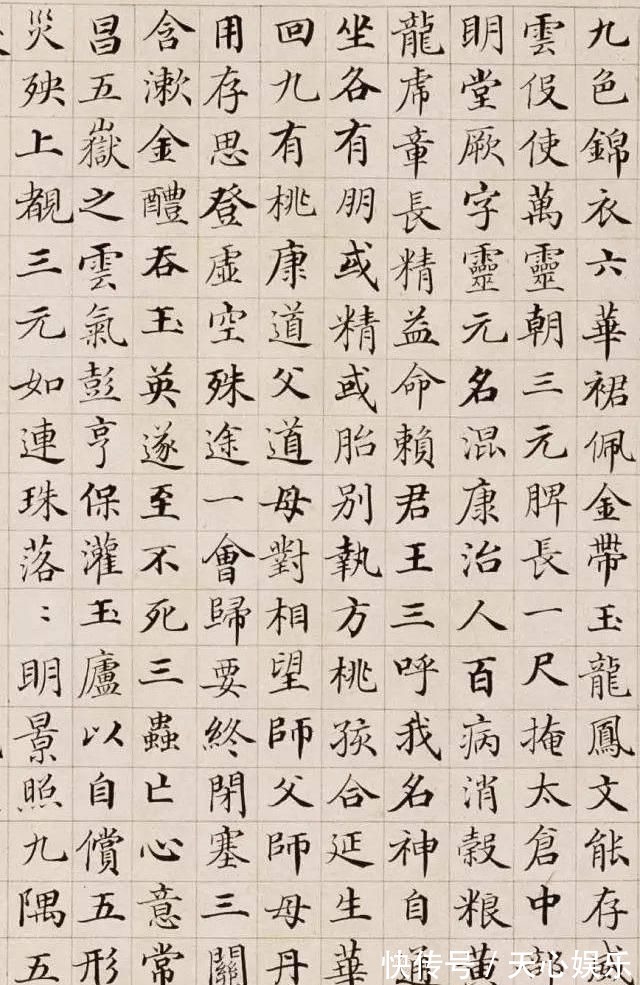 九色錦衣六華裙佩金帶玉龍鳳文能存威
雲役使萬靈朝三元脾長一尺掩太倉中部
明堂厥字靈元名混康治人百病消穀粮黃
龍虎章長精益命賴君王三呼我名神自通
坐各有朋或精或胎別執方桃孩合延生華
回九有桃康道父道母對相望師父師母丹
用存思登虛空殊途一會歸要終閉塞三關
含漱金醴吞玉英遂至不死三蟲亡心意常
昌五嶽之雲氣彭亨保灌玉廬以自償五形
災殃上覩三元如連珠落〻明景照九隅五
快传号 / 天心娱乐